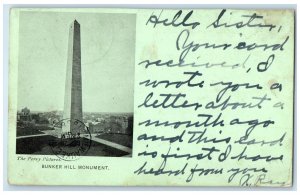 Hello Sister,
Your card
received, I
wrote you a
letter about a
month ago
and this card
is first I have
heard from you
The Perry Pictures.
BUNKER HILL MONUMENT.